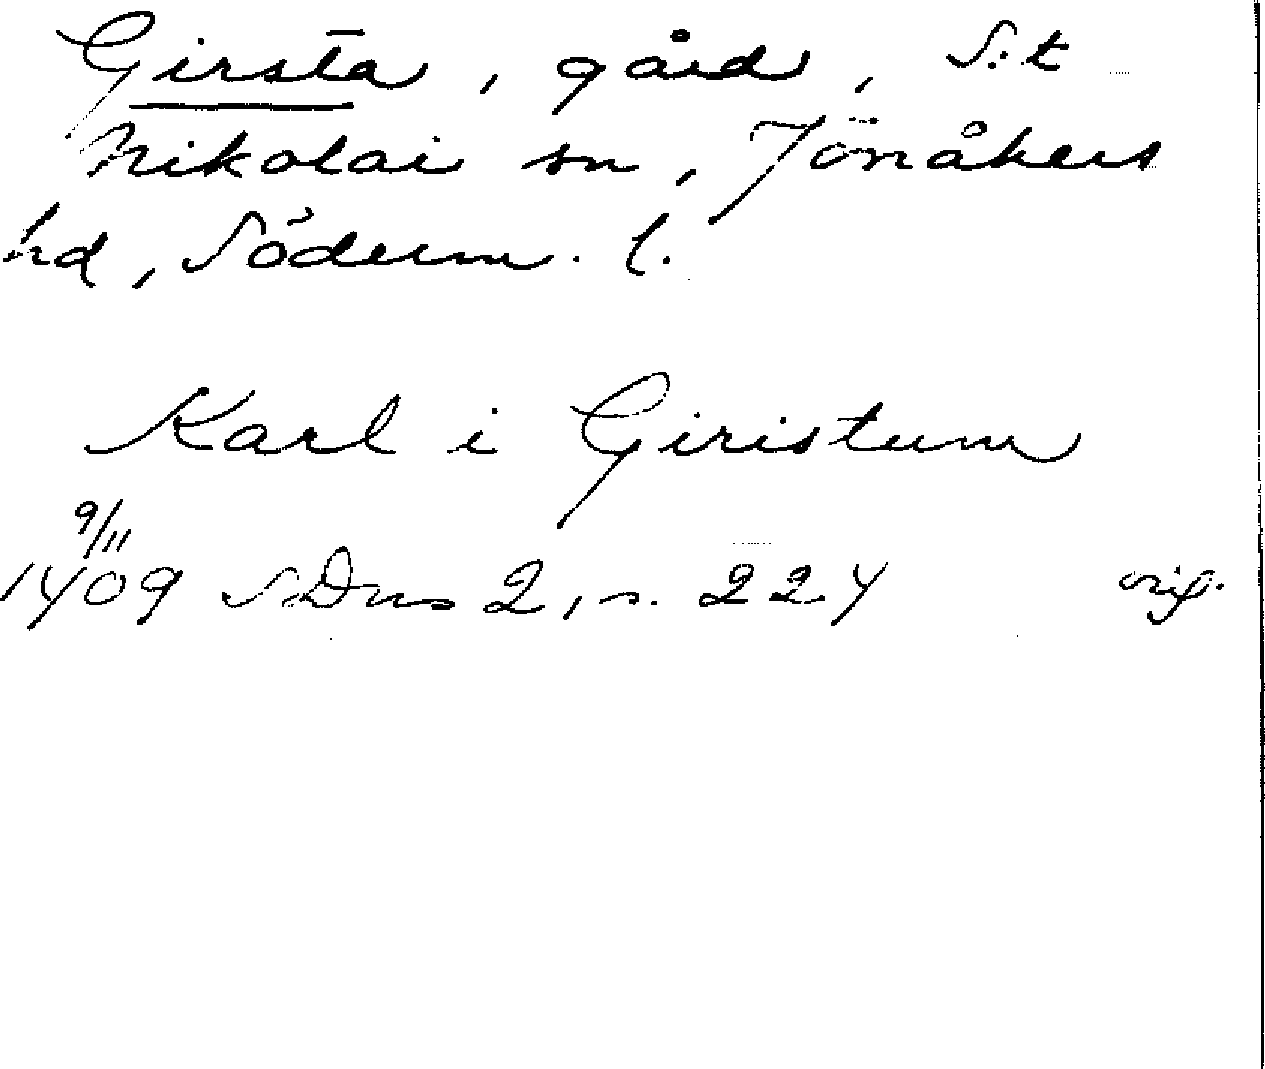 Girsta, gård, S:t
Nikolai sn, Jönåkers
hd, Söderm. l.
Karl i Giristum
9/11
1409 SDns 2, s. 224 orig.